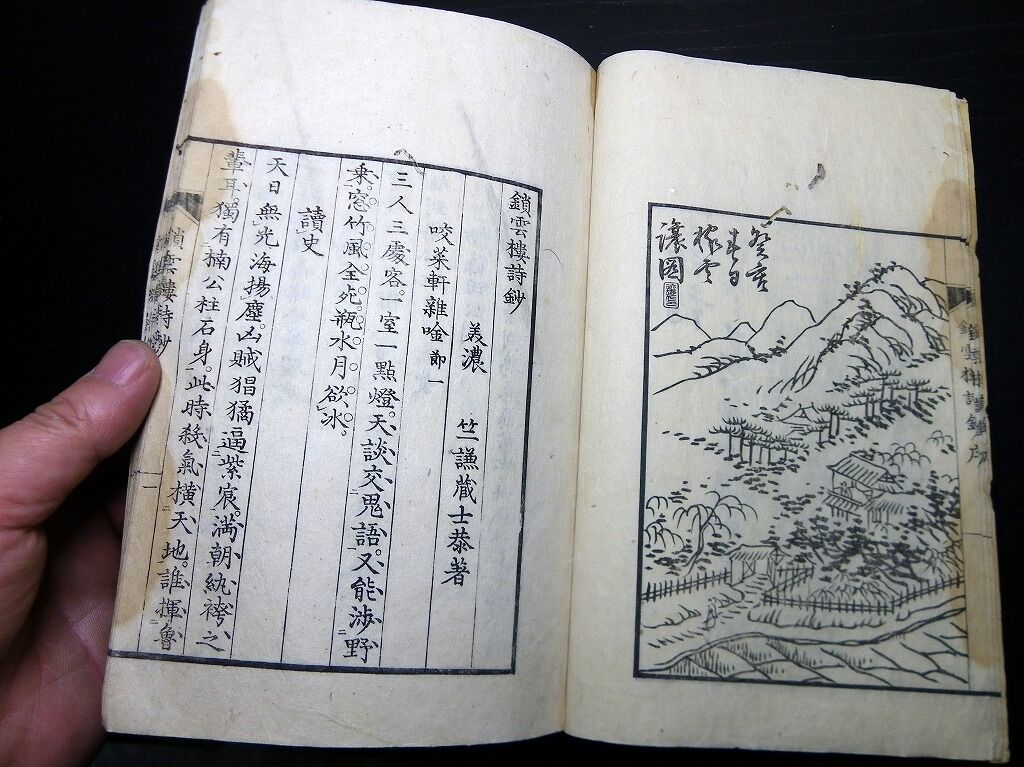 癸亥
春日
穣図
鎖雲楼詩鈔序
鎖雲樓詩鈔
美濃　竺謙蔵士恭著
咬菜軒雜唫
三人三處客。一室一點燈。天談交鬼語。又能涉野
乗。窓竹風全死。瓶水月欲冰。
讀史
天日無光海揚塵。凶賊猖獗逼紫宸。満朝紈袴之
輩耳。獨有楠公柱石身。此時殺氣橫天地。誰揮魯
鎖雲樓詩鈔
一